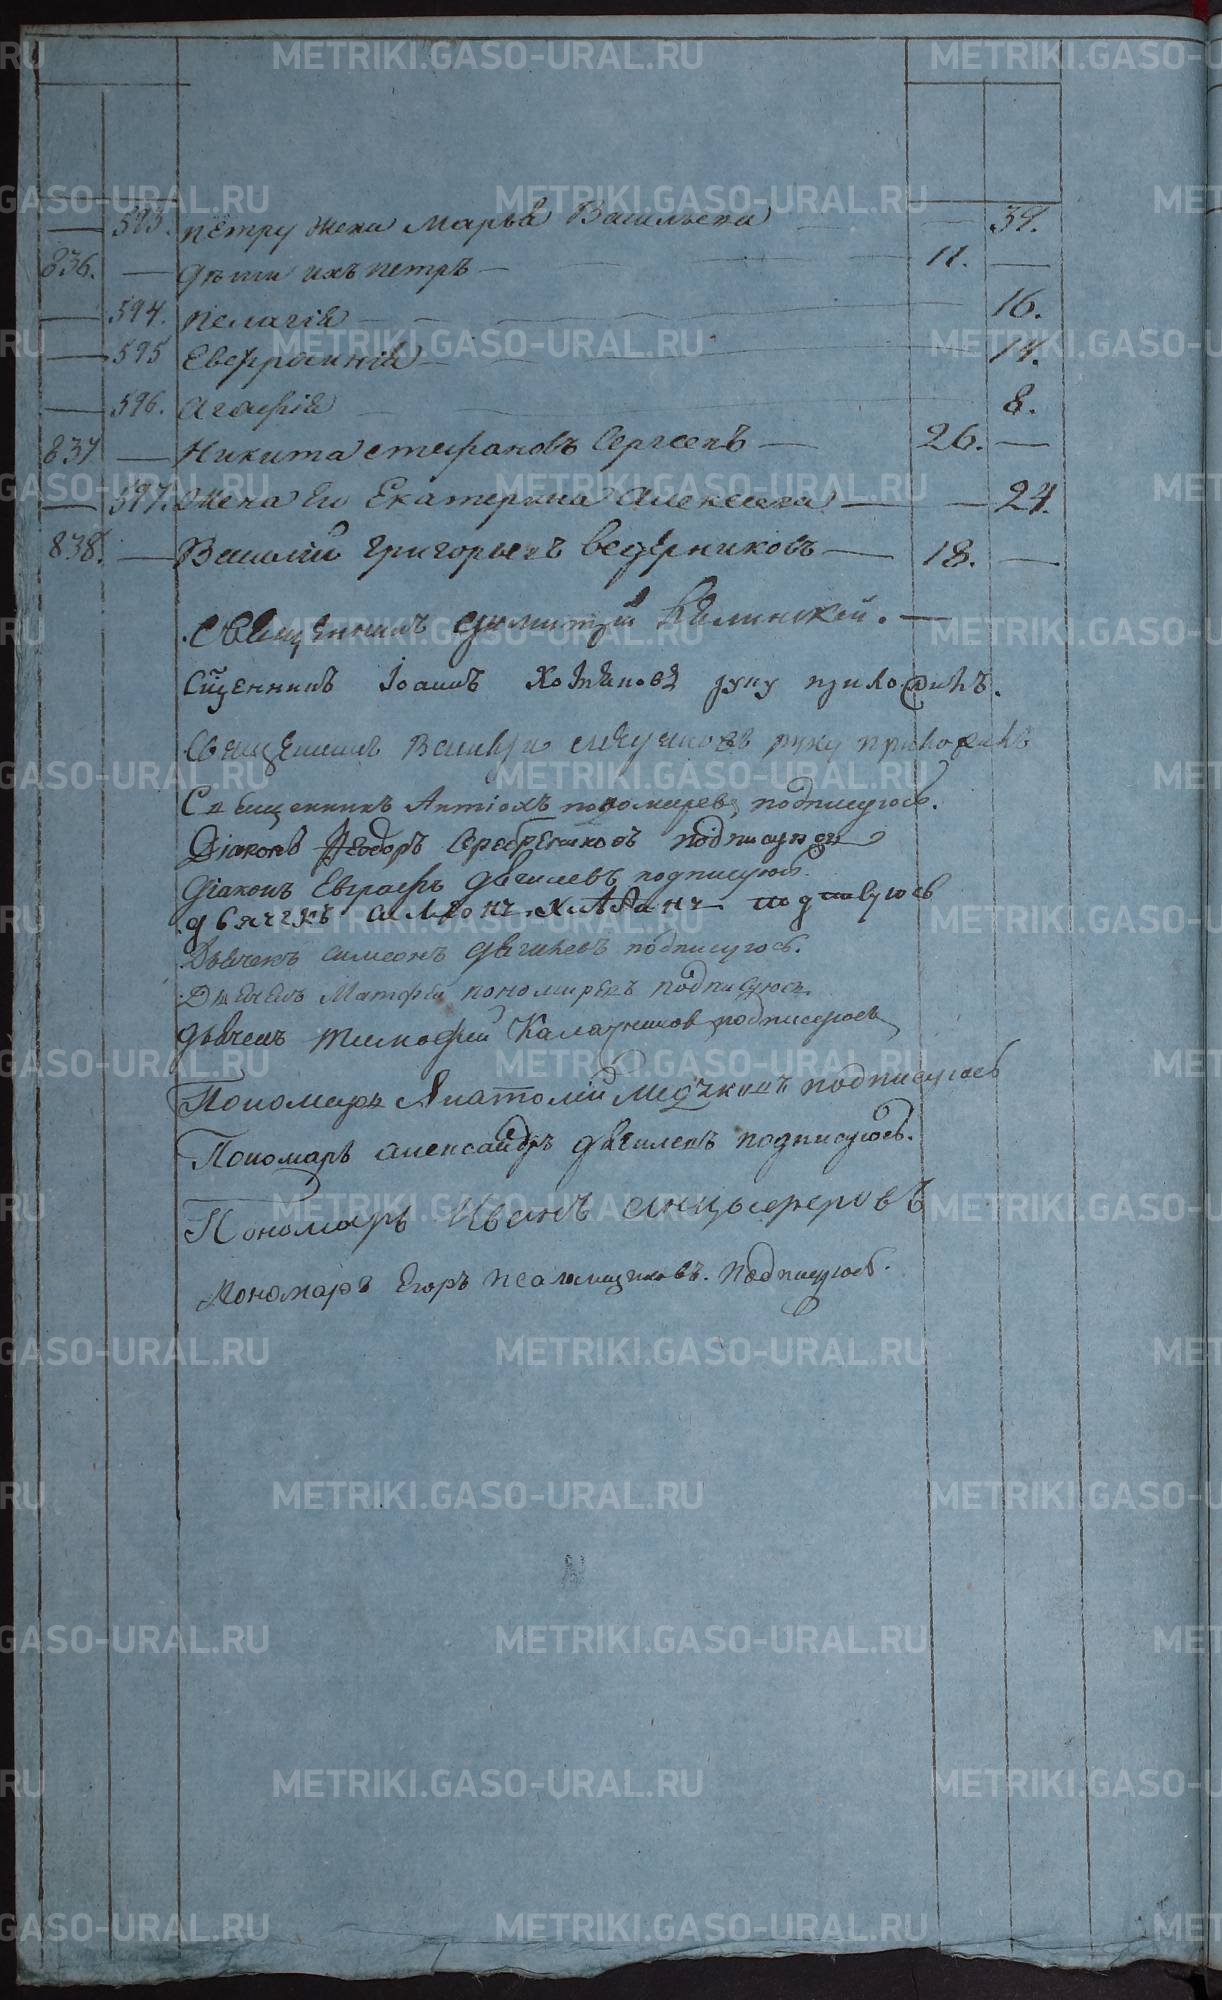 593. Петру жена Марья Васильева 39.
836. дѣти ихъ Петръ 11.
594. Пелагія 16.
595 Евфросинія 14.
596. Агафія 8.
837 Никита Стефановъ Сергеевъ 26.
597. Жена Ег Екатерина Алексеева 24.
838. Василий Григорьевъ Ведерниковъ 18.
Священникъ Димитрій
Сщенникъ Іоаннъ руку приложилъ.
Священникъ Василій руку приложилъ
Священникъ Антіохъ пономаревъ подписуюсь.
Діаконъ Ѳеодоръ Серебрениковъ подписуюсь
Діаконъ Евграфъ дягилевъ подписуюсь.
дьячекъ симеонъ подписуюсь
Дьячекъ симеонъ дягилевъ подписуюсь.
Дьячекъ Матфей пономаревъ подписуюсь
дьячекъ тимофей Калашниковъ подписуюсь
Пономарь Анатолій подписуюсь
Пономаръ александръ дягилевъ подписуюсь.
Пономаръ Иванъ анцыферовъ
Пономаръ Егоръ псаломщиковъ. Подписуюсь.
METRIKI.GASO-URAL.RU